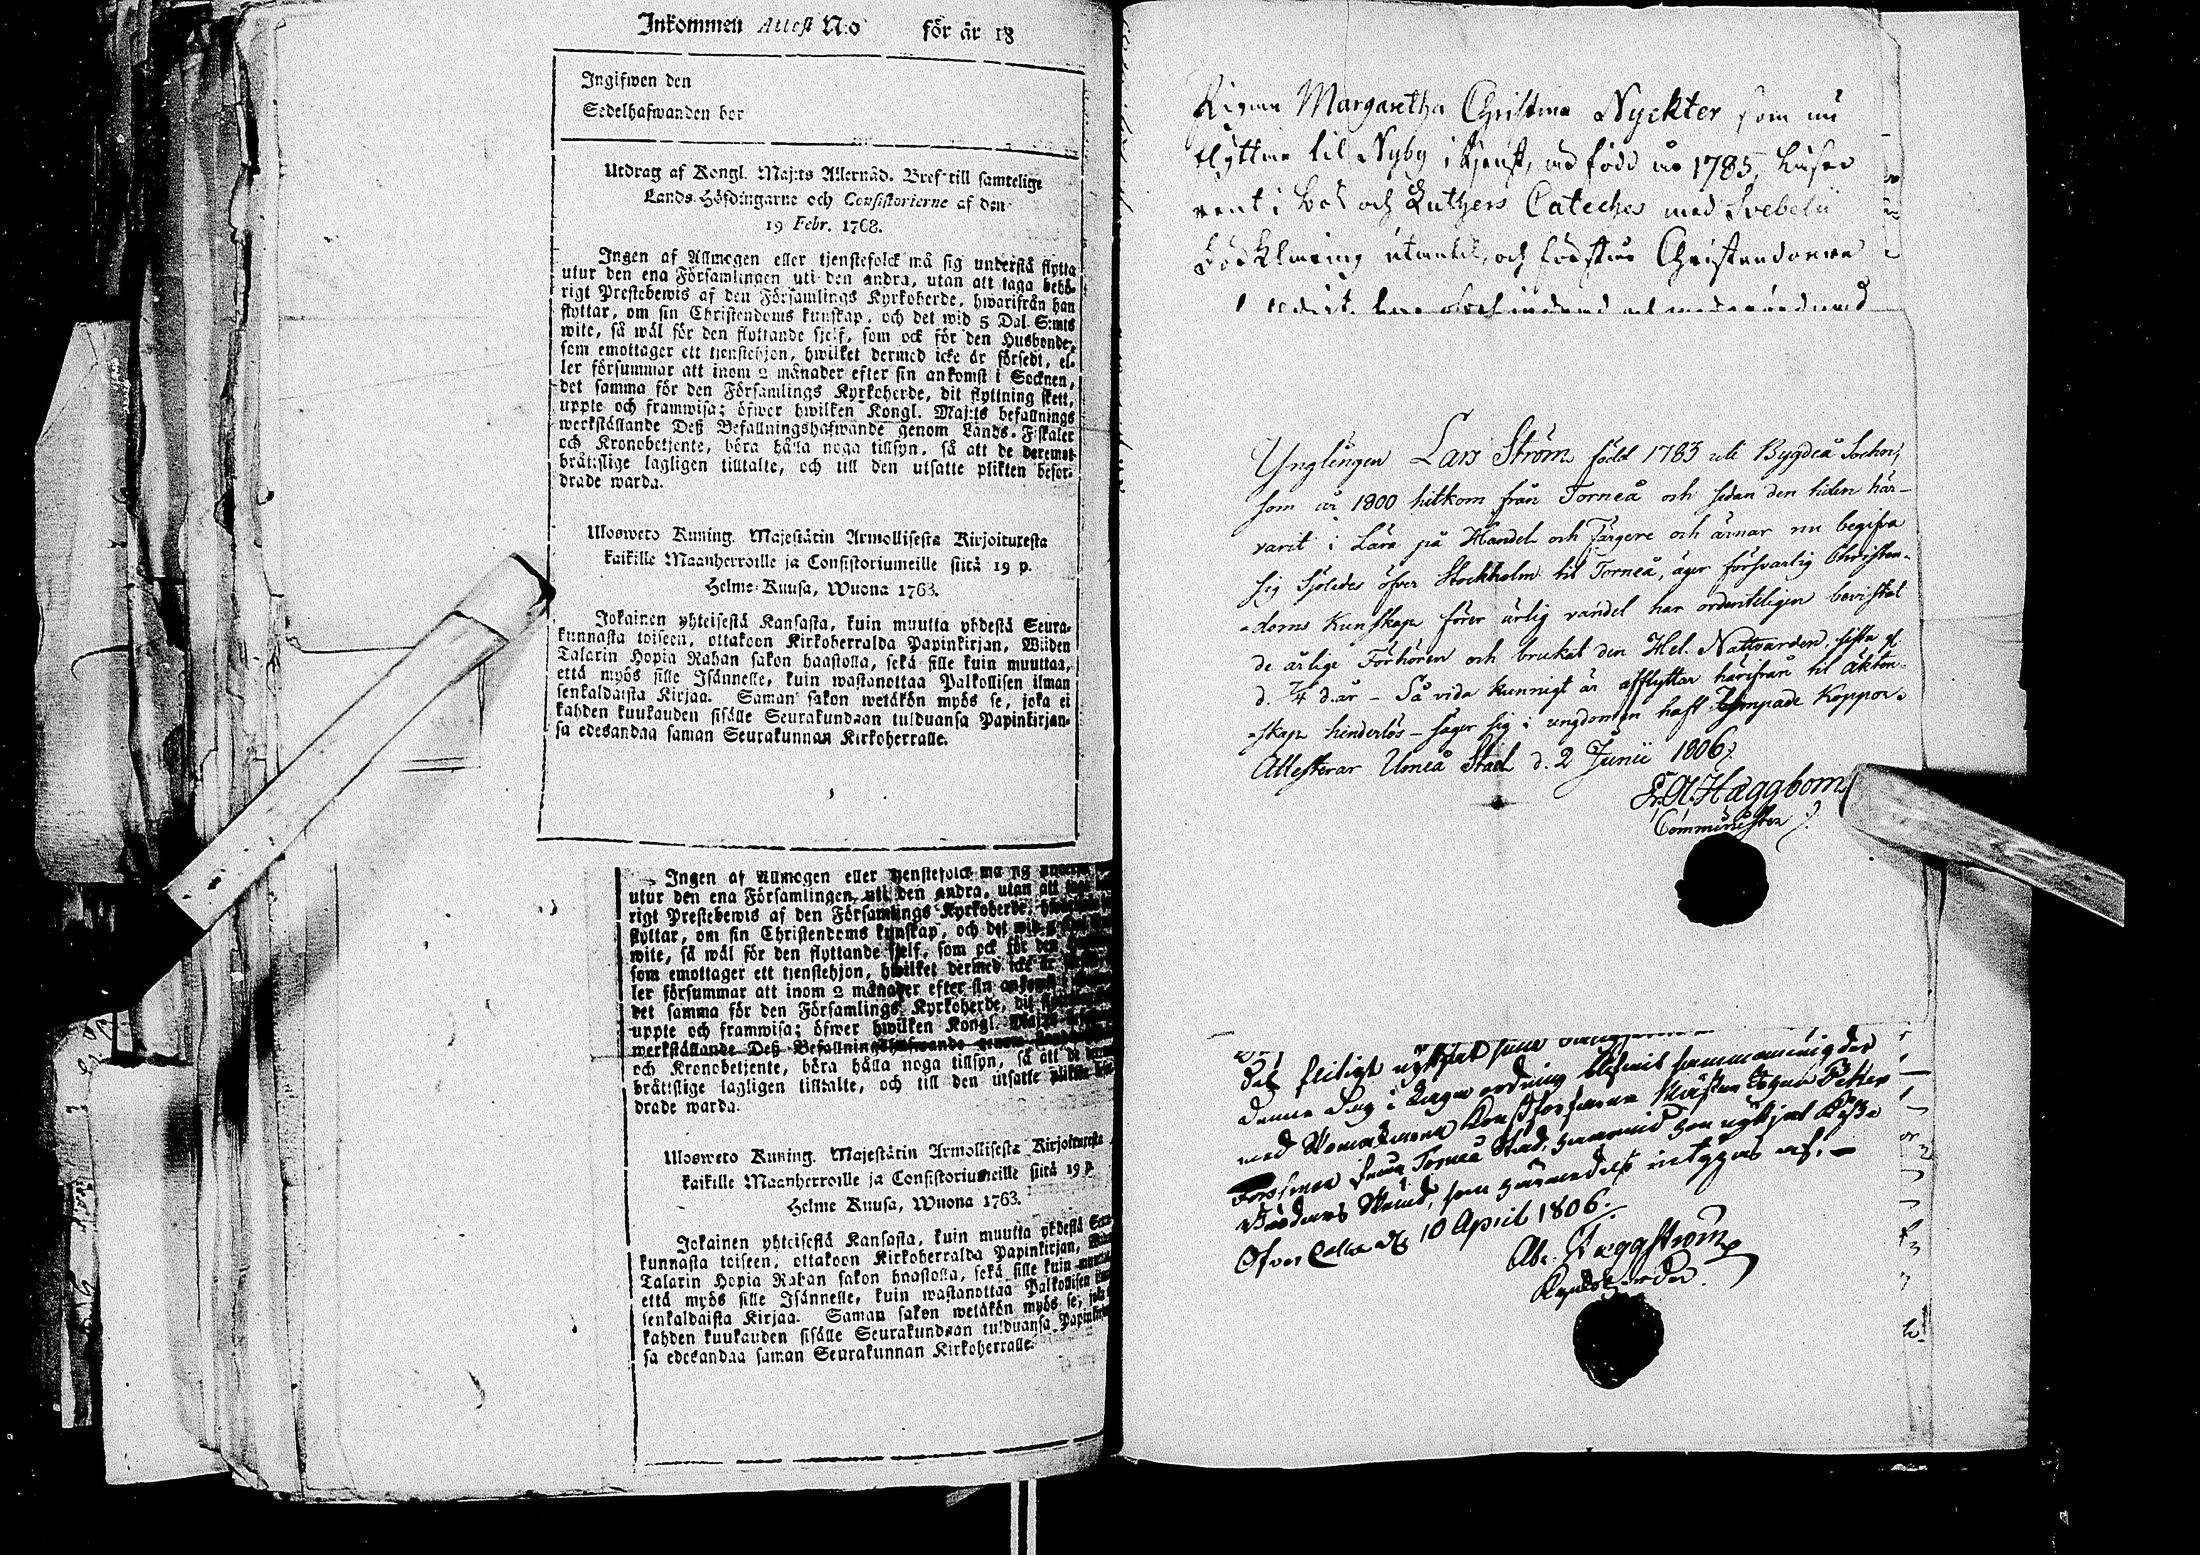 Inkommen Attest N:o för år 18
Ingifwen den
Sedelhafwanden bor
Utdrag af Kongl. Maj:ts Allernåd. Bref till samtelige
Lands-Höfdingarne och Consistorierne af den
19 Febr. 1768.
Ingen af Allmogen eller tjenstefolck må sig understå flytta
utur den ena Församlingen uti den andra, utan att taga behö-
rigt Prestebewis af den Församlings Kyrkoherde, hwarifrån han
flyttar, om sin Christendoms kunskap, och det wid 5 Dal. S:mts
wite, så wäl för den flyttande sjelf, som ock för den Husbonde,
som emottager ett tjenstehjon, hwilket dermed icke är försedt, el-
ler försummar att inom 2 månader efter sin ankomst i Socknen,
det samma för den Församlings Kyrkoherde, dit flyttning skett,
uppte och framwisa; öfwer hwilken Kongl. Maj:ts befallnings
werkställande Deß Befallningshafwande genom Lands-Fiskaler
och Kronobetjente, böra hålla noga tillsyn, så att de deremot
bråttslige lagligen tilltalte, och till den utsatte plikten befor-
drade warda.
Ulosweto Kuning. Majestätin Armollisesta Kirjoituxesta
kaikille Maanherroille ja Consistoriumeille siitä 19 p.
Helme-Kuusa, Wuona 1763.
Jokainen yhteisestä Kansasta, kuin muutta yhdestä Seura-
kunnasta toiseen, ottakoon Kirkoherralda Papinkirjan, Wiiden
Talarin Hopia Rahan sakon haastolla, sekä sille kuin muuttaa,
että myös sille Isännelle, kuin wastanottaa Palkollisen ilman
senkaldaista Kirjaa. Saman sakon wetäkön myös se, joka ei
kahden kuukauden sisälle Seurakundaan tulduansa Papinkirjan-
sa edesandaa saman Seurakunnan Kirkoherralle.
Ingen af Allmogen eller tjenstefolck må sig
utur den ena Församlingen uti den andra, utan att
rigt Prestebewis af den Församlings Kyrkoherde,
flyttar, om sin Christendoms kunskap, och det wid
wite, så wäl för den flyttande sjelf, som ock för den
som emottager ett tjenstehjon, hwilket dermed icke är
ler försummar att inom 2 månader efter sin ankomst
det samma för den Församlings Kyrkoherde, dit
uppte och framwisa; öfwer hwilken Kongl. Maj:ts
werkställande Deß Befallningshafwande genom
och Kronobetjente, böra hålla noga tillsyn, så att de
bråttslige lagligen tilltalte, och till den utsatte plikten
drade warda.
Ulosweto Kuning. Majestätin Armollisesta Kirjoituxesta
kaikille Maanherroille ja Consistoriumeille siitä 19 p.
Helme Kuusa, Wuona 1763.
Jokainen yhteisestä Kansasta, kuin muutta yhdestä
kunnasta toiseen, ottakoon Kirkoherralda Papinkirjan,
Talarin Hopia Rahan sakon haastolla, sekä sille kuin
että myös sille Isännelle, kuin wastanottaa Palkollisen
senkaldaista Kirjaa. Saman sakon wetäkön myös se,
kahden kuukauden sisälle Seurakundaan tulduansa
sa edesandaa saman Seurakunnan Kirkoherralle.
Pigan Margaretha Christina Nyckter som nu
flyttar til Nyby i tjenst, är född år 1785, läser
rent i bok och Luthers Cateches med Svebelii
Förklaring utantil, och förstår Christendomen
Ynglingen Lars Ström född 1783 uti Bygdeå Sochn,
som år 1800 hitkom från Torneå och sedan den tiden här-
varit i Lära på Handel och Färgere och ärnar nu begifva
sig Sjöledes öfver Stockholm til Torneå, äger försvarlig Christen-
doms Kunskap förer ärlig vandel har ordenteligen bevistat
de årlige Förhören och brukat den Hel. Nattvarden sista g.
d. 7/4 d. år - Så vida kunnigt är afflyttar härifrån til äkten-
skap hinderlös - säger sig i ungdomen haft Koppor.
Attesterar Umeå Stad d. 2 Junii 1806.
Häggbom
Comminister
det flitigt
denna Dag i Laga ordning blifvit
med
Torneå Stad,
som härmedelst intygas af. -
Öfver Calix d. 10 April 1806.
Ab. Hæggström
Kyrkoherde.